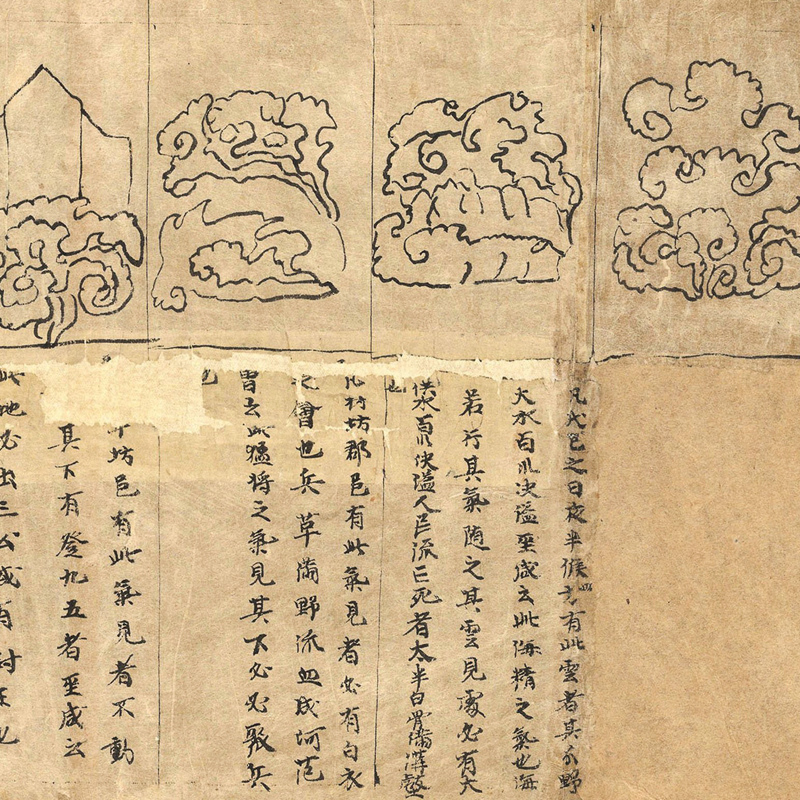 凡戊己之日夜半候之有此雲者其分野
大水百川決溢臣咸云此海精之氣也海
若行其氣隨之其雲見處必有大
洪水百川決溢人民流亡死者太半白骨滿溝壑
也
凡村坊郡邑有此氣見者必有白衣
之會也兵革滿野流血成河范
曾云此猛將之氣見其下必必聚兵
也
坊邑有此氣見者不動
其下有登九五者臣咸云
此地必出三公或有封王也